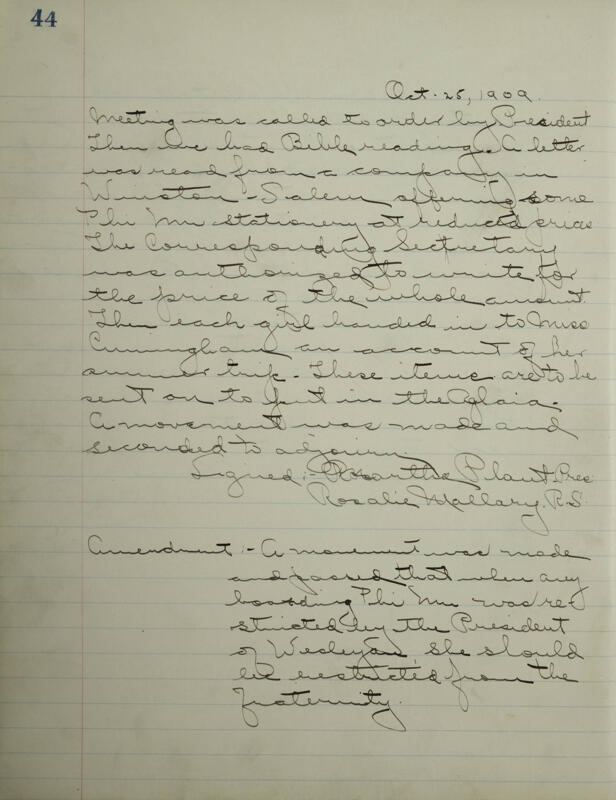 44
Oct. 25, 1909.
Meeting was called to order by President
Then we had Bible reading. A letter
was read from a company in
Winston-Salem offering some
Phi Mu stationery at reduced prices
The Corresponding Sectretary
was authorized to write for
the price of the whole amount.
Then each girl handed in to Miss
Cunningham an account of her
summer trip. These items are to be
sent on to put in the Aglaia.
A movement was made and
seconded to adjourn.
Signed:- Martha Plant Pres
Rosalie Mallary. R.S.
Amendment:- A movement was made
and passed that when any
boarding Phi Mu was re-
stricted by the President
of Wesleyan she should
be restricted from the
fraternity.